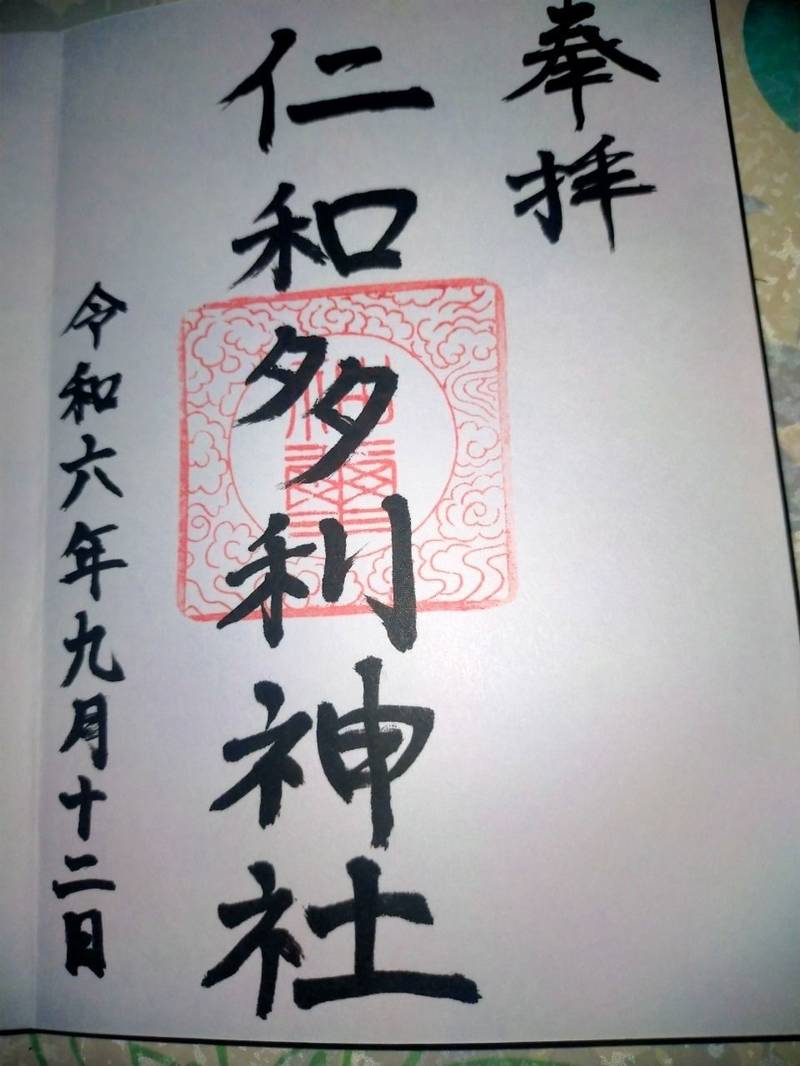 奉拝
仁和多利神社
令和六年九月十二日